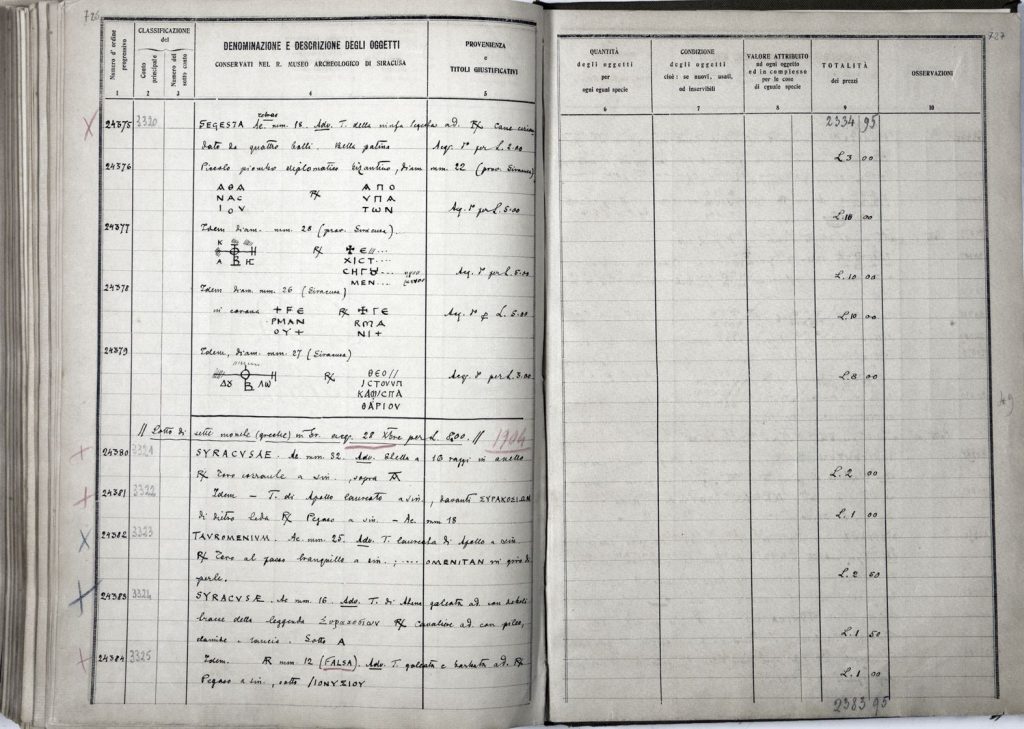 726
Numero d'ordine progressivo
CLASSIFICAZIONE
del
Conto principale
Numero del sotto conto
DENOMINAZIONE E DESCRIZIONE DEGLI OGGETTI
CONSERVATI NEL R. MUSEO ARCHEOLOGICO DI SIRACUSA
PROVENIENZA
e
TITOLI GIUSTIFICATIVI
1 2 3 4 5
24375 3320 SEGESTA Ae. mm. 18. Adv. T. della ninfa Segesta ad. R/ Cane
dato da quattro Bella patina Acq. per L. 2.00
24376 Piccolo piombo diplomatico bizantino, diam. mm. 22 (prov. Siracusa)
ΑΘΑ R/ ΑΠΟ
ΝΑC ΥΠΑ
ΙΟΥ ΤΩΝ Acq. per L. 5.00
24377 Idem diam. mm. 28 (prov. Siracusa).
Κ R/ ✠ Ε//....
ΧΙCΤ....
Α Β ΗC CΗΓ.... Acq. per L. 5.00
ΜΕΝ...
24378 Idem diam mm. 26 (Siracusa)
in corona + F Ε R/ ✠ Γ Ε Acq. L. 5.00
ΡΜΑΝ RΜΑ
ΟΥ + ΝΙ +
24379 Idem, diam. mm. 27 (Siracusa)
R/ ΘΕΟ // Acq. per L. 3.00
ΔΥ Β ΛΩ ΙCΤΟΥΥΠ
ΚΑΦΙCΠΑ
ΘΑΡΙΟΥ
// Lotto di sette monete (greche) in br. acq. 28 Xbre per L. 8,00. // 1904
24380 3321 SYRACVSAE. Ae. mm. 32. Adv. Stella a 16 raggi in anello
R/ Toro a sin., sopra Α
24381 3322 Idem - T. di Apollo laureato a sin., davanti ΣΥΡΑΚΟΣΙΩΝ
di dietro R/ Pegaso a sin. - Ae. mm 18
24382 3323 TAVROMENIVM. Ae. mm. 25. Adv. T. laureata di Apollo a sin.
R/ Toro al passo tranquillo a sin.; .... OMENITAN in giro di
perle.
24383 3324 SYRACVSÆ. Ae mm. 16. Adv. T. di Atena galeata ad. con
tracce della leggenda Συρακοσίων R/ Cavaliere ad. con pileo,
clamide e lancia. Sotto Α
24384 3325 Idem. AR mm. 12 (FALSA). Adv. T. galeata e barbata ad. R/
Pegaso a sin., sotto /ΙΟΝΥΣΙΟΥ
727
QUANTITÀ
degli oggetti
per
ogni egual specie
CONDIZIONE
degli oggetti
cioè: se nuovi, usati,
od inservibili
VALORE ATTRIBUITO
ad ogni oggetto
ed in complesso
per le cose
di eguale specie
TOTALITÀ
dei prezzi
OSSERVAZIONI
6 7 8 9 10
2334 95
L. 3 00
L. 10 00
L. 10 00
L. 10 00
L. 8 00
L. 2 00
L. 1 00
L. 2 50
L. 1 50
L. 1 00
2383 95